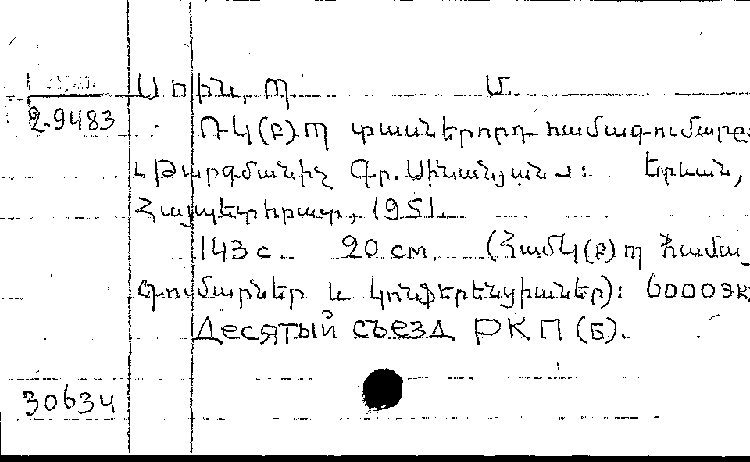 Սորին, Պ. Մ.
2-9483 ՌԿ(բ)Պ տասներորդ համագումարը
Թարգմանիչ Գր. Սինանյան: Երևան,
Հայպետհրատ, 1951.
143 с. 20 см. (ՀամԿ(բ)Պ համա
գումարներ և կոնֆերենցիաներ): 6000 эк
Десятый съезд РКП(б).
30634